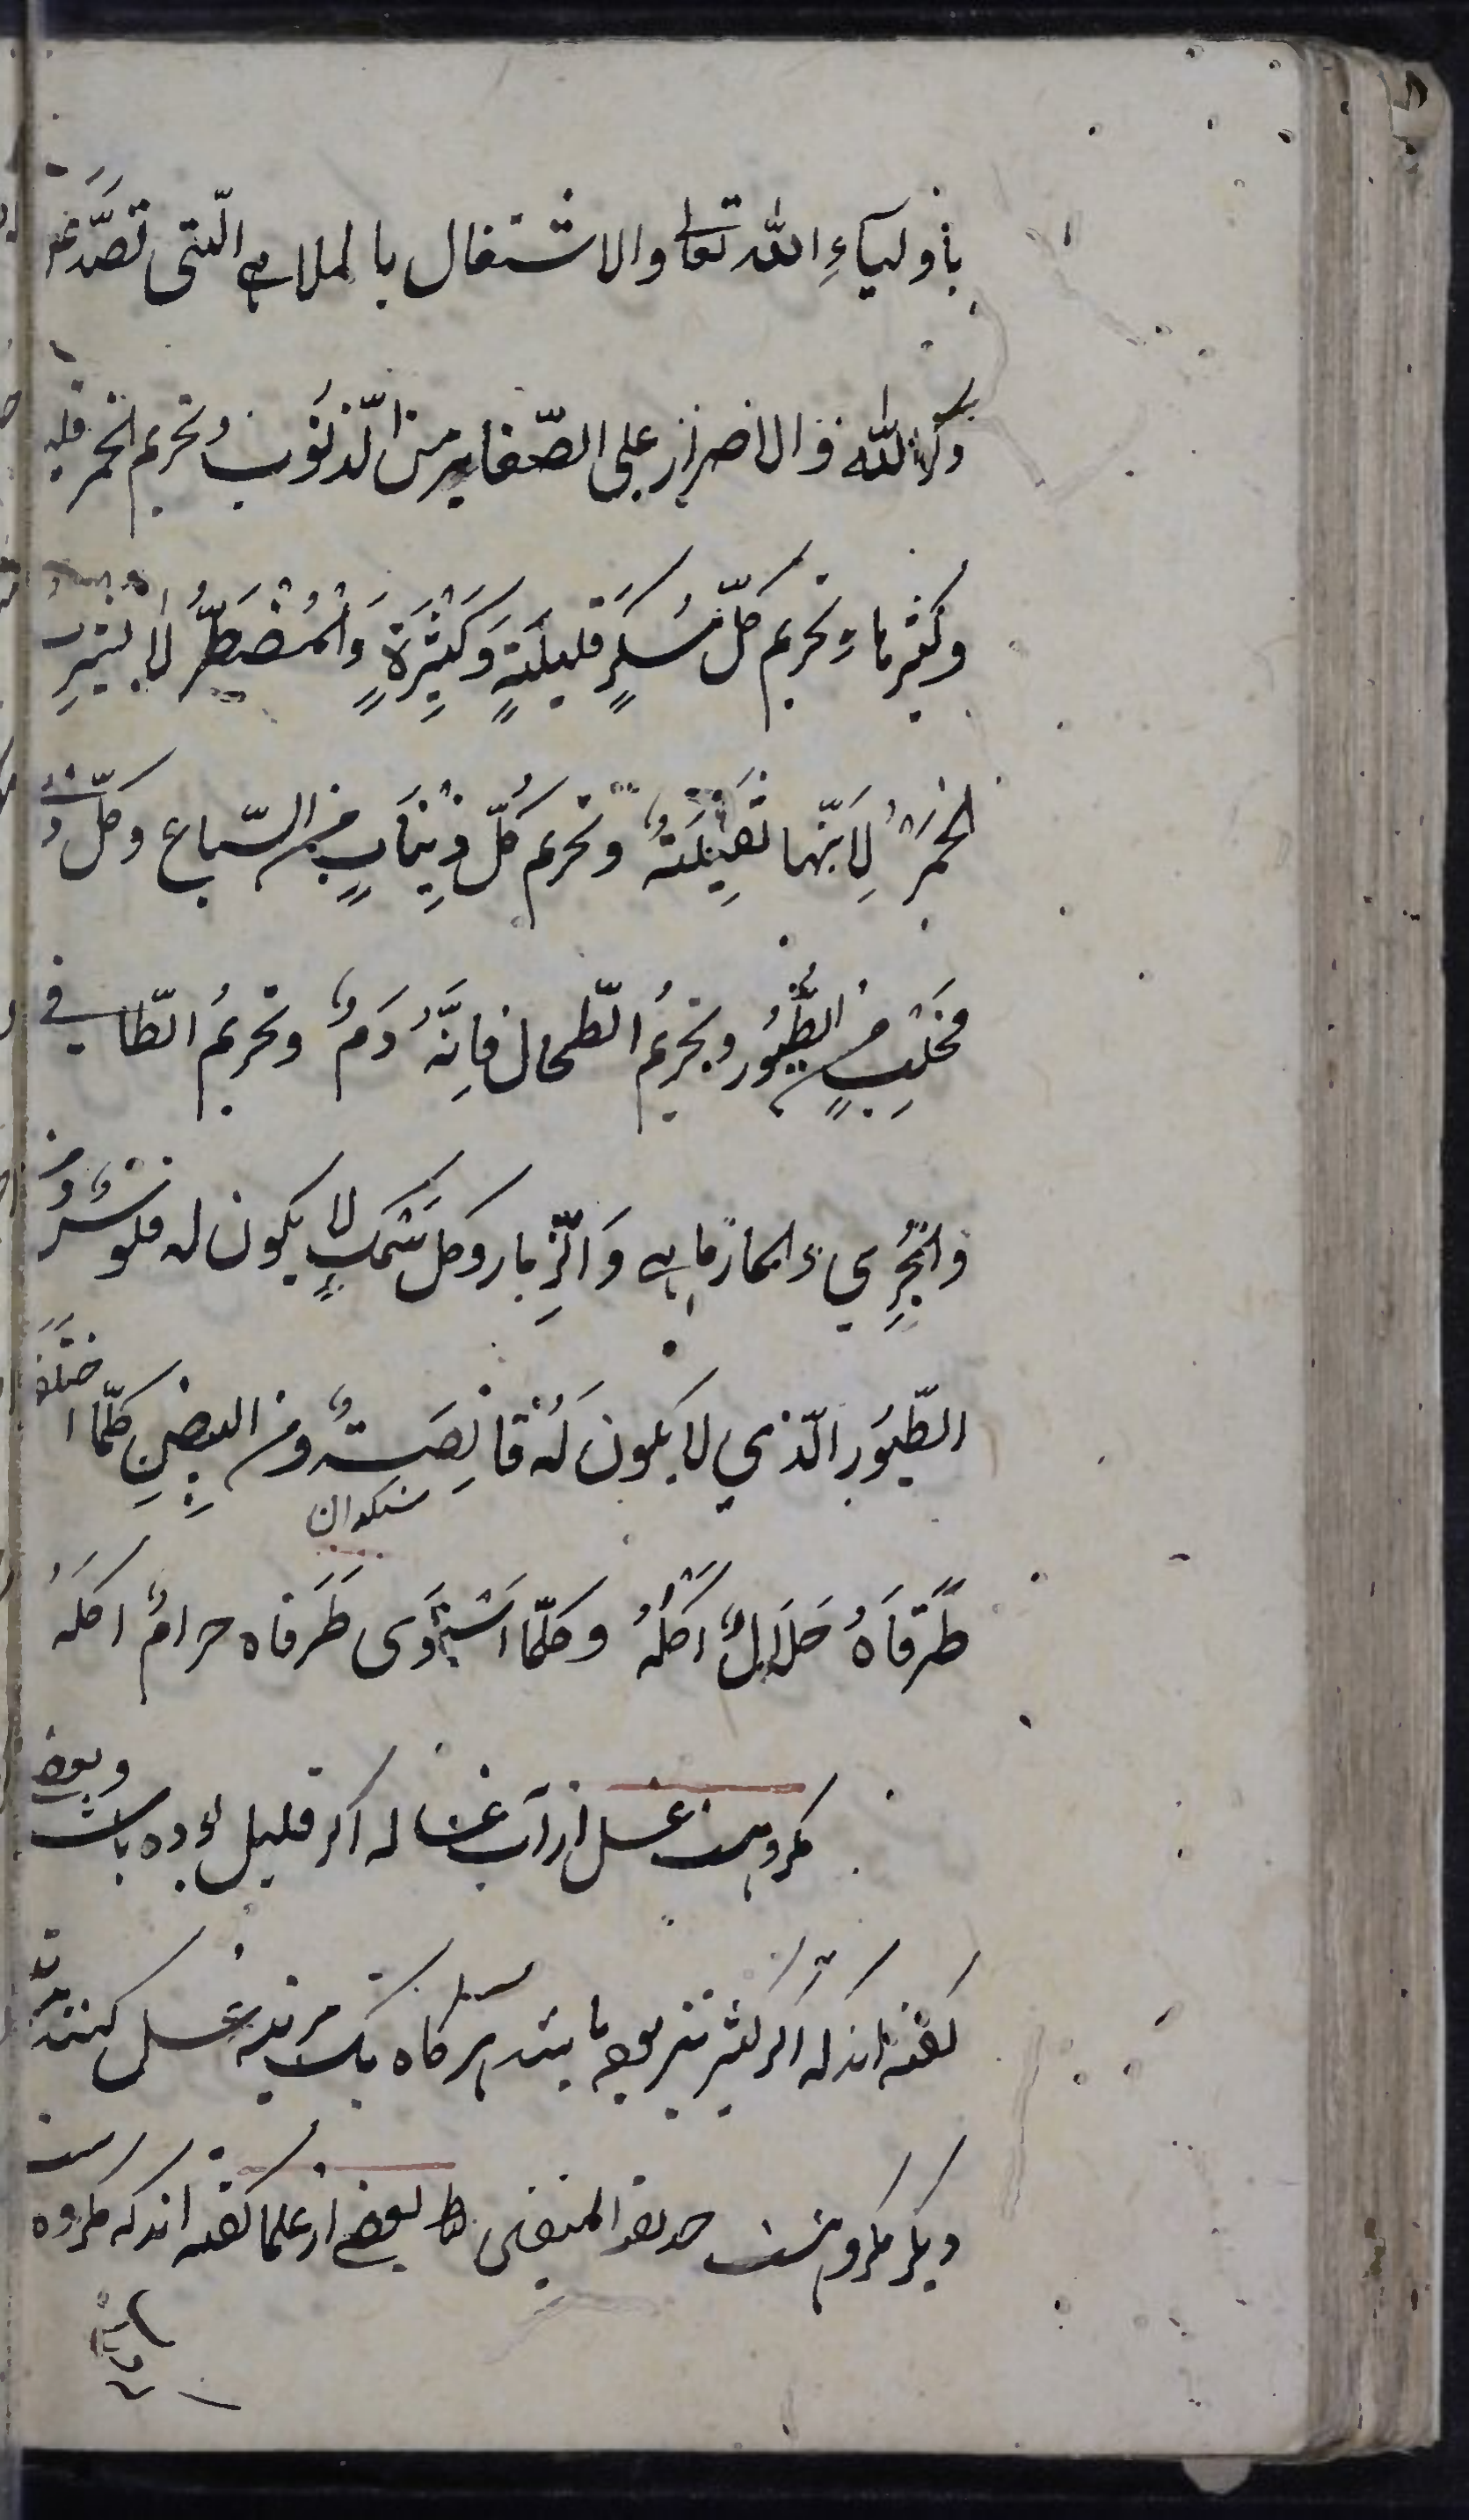 بأولياءِ الله تعالی والاشتغال بالملاهي الّتی تصَّدُ عن
ذکر اللّه والاصرار علی الصّغایر من الّذنوُب وتحریم الخمر قلیلها
وکثیرها وتحریم کلّ مُسکرٍ قلیلةٍ وَکثِیرَةٍ وَالمُضطَرُّ لا یشرب
الخمرَ لِاَنّها تقتِلَهُ وتحریم کُلّ ذینابٍ من السّباع وکلّ ذی
مخلبٍ من الطُّیُور وتحریمُ الطّحال فاِنَّهُ دَمٌ وتحریمُ الطّافي
والجِرِّي والمارماهي وَالزِّمار وکل سَمَکٍ لا یکون له فلوسٌ ومن
الطّیُور الّذي لا یکون لَهُ قانِصَةٌ ومن البیضِ کلّما اختلف
سنکدان
طَرَفَاهُ حَلَالٌ اَکلُهُ وکلّما اسْتَوَی طَرَفاه حرامٌ اکلهُ
مکروهست غسل از آب غساله اکر قلیل بوده باشد وبعضی
کفته اند که اکر کثیر نیز بوده باشد هر کاه یک مرتبه غسل کنند
دیکر مکروهست بعضی از علما کفته اند که مکروه است